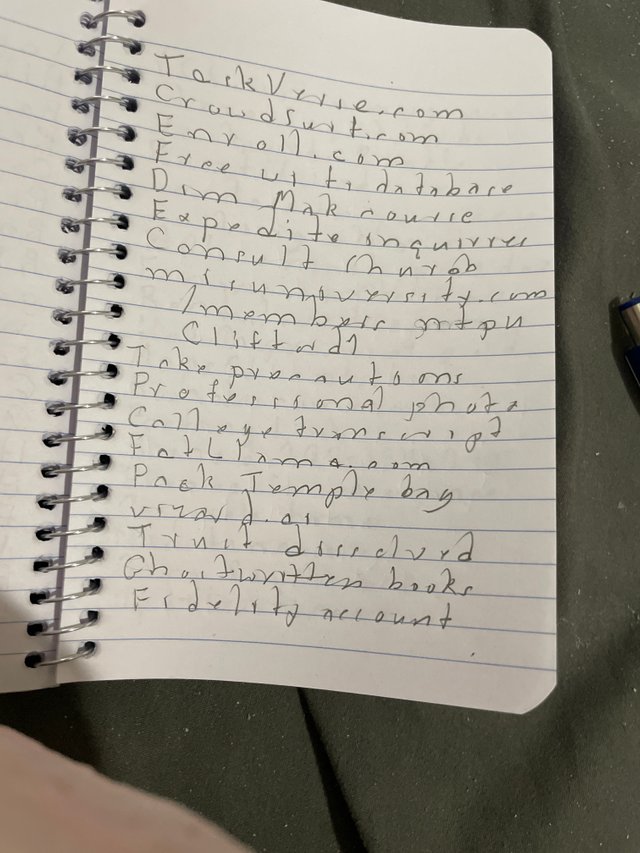 TaskVerse.com
Crowdsurf.com
Enroll.com
Free database
Dim Mak course
Expedite inquiries
Consult
missuniversity.com
Take precautions
Professional photo
College transcript
FatLlama.com
Pack Temple bag
vizard.ai
Trust dissolved
Ghostwritten books
Fidelity account